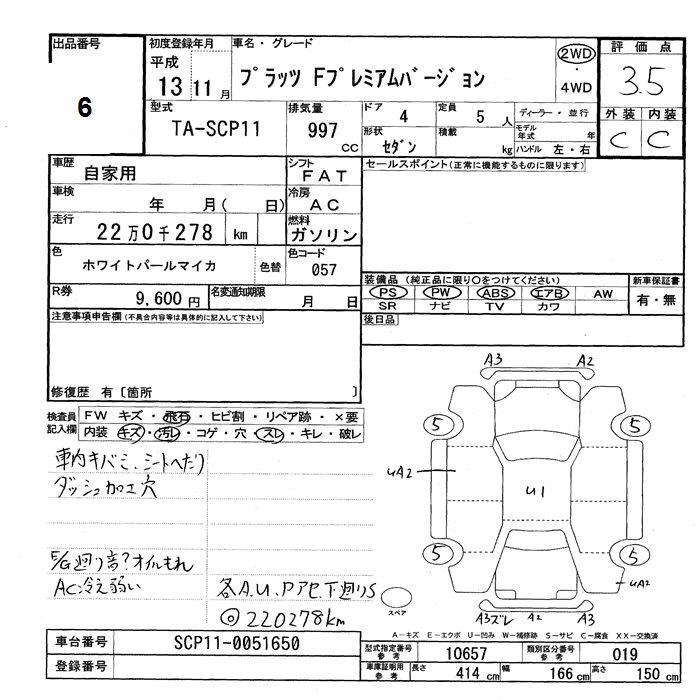 出品番号
6
初度登録年月
平成
13 11 月
車名・グレード
プラッツ Fプレミアムバージョン
2WD
・
4WD
評価点
3.5
外装 内装
C C
型式
TA-SCP11
排気量
997
cc
ドア 4
定員 5 人
ディーラー・並行
形状 セダン
積載 kg
モデル年式 年
ハンドル 左・右
車歴
自家用
シフト
FAT
セールスポイント(正常に機能するものに限ります)
車検
年 月( 日)
冷房
AC
走行
22万0千278 km
燃料
ガソリン
色
ホワイトパールマイカ
色替
色コード
057
装備品 (純正品に限り○をつけてください)
新車保証書
PS PW ABS エアB AW
有・無
SR ナビ TV カワ
R券
9,600円
名変通知期限
月 日
後日品
注意事項申告欄(不具合内容等は具体的に記入して下さい)
修復歴 有〔箇所 〕
検査員
記入欄
FW キズ・飛石・ヒビ割・リペア跡・×要
内装 キズ・汚レ・コゲ・穴・スレ・キレ・破レ
車内キバミ、シートへたり
ダッシュ加工穴
E/G廻り音?オイルもれ
AC冷え弱い
各A.U.Pアセ.下廻りS
◎220278km
A3 A2
5 5
uA2
U1
5 5
uA2
スペア
A3ズレ A2 A3
A-キズ E-エクボ U-凹み W-補修跡 S-サビ C-腐食 XX-交換済
車台番号
SCP11-0051650
登録番号
型式指定番号
参考
10657
類別区分番号
参考
019
車庫証明用
参考
長さ 414 cm
幅 166 cm
高さ 150 cm